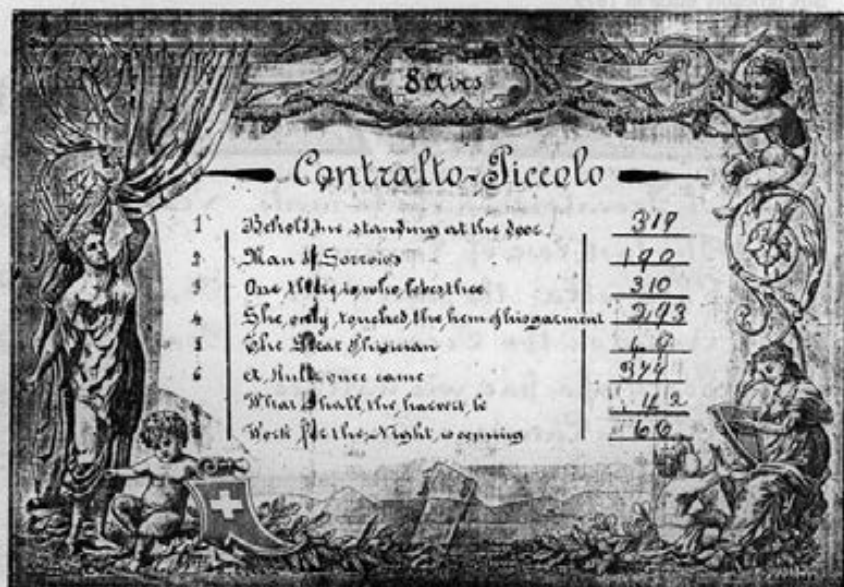 8 Airs
Contralto-Piccolo
1 Behold me standing at the door 319
2 Man of Sorrows 190
3 One there is who loves thee 310
4 She only touched the hem of his garment 293
5 The Great Physician 49
6 A Ruler once came 374
What shall the harvest be 112
8 Work for the Night is coming 66